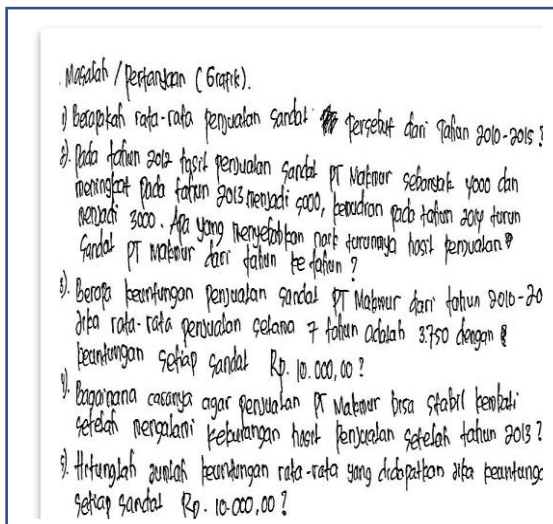 Masalah / Pertanyaan (Grafik).
1) Berapakah rata-rata penjualan sandal tersebut dari tahun 2010-2015?
2). Pada tahun 2012 hasil penjualan sandal PT Makmur sebanyak 4000 dan
meningkat pada tahun 2013 menjadi 5000, kemudian pada tahun 2014 turun
menjadi 3000. Apa yang menyebabkan naik turunnya hasil penjualan
sandal PT Makmur dari tahun ke tahun?
3). Berapa keuntungan penjualan sandal PT Makmur dari tahun 2010-20
jika rata-rata penjualan selama 7 tahun adalah 3.750 dengan
keuntungan setiap sandal Rp. 10.000,00?
4). Bagaimana caranya agar penjualan PT Makmur bisa stabil kembali
setelah mengalami kekurangan hasil penjualan setelah tahun 2013?
5). Hitunglah jumlah keuntungan rata-rata yang didapatkan jika keuntunga
setiap sandal Rp. 10.000,00?